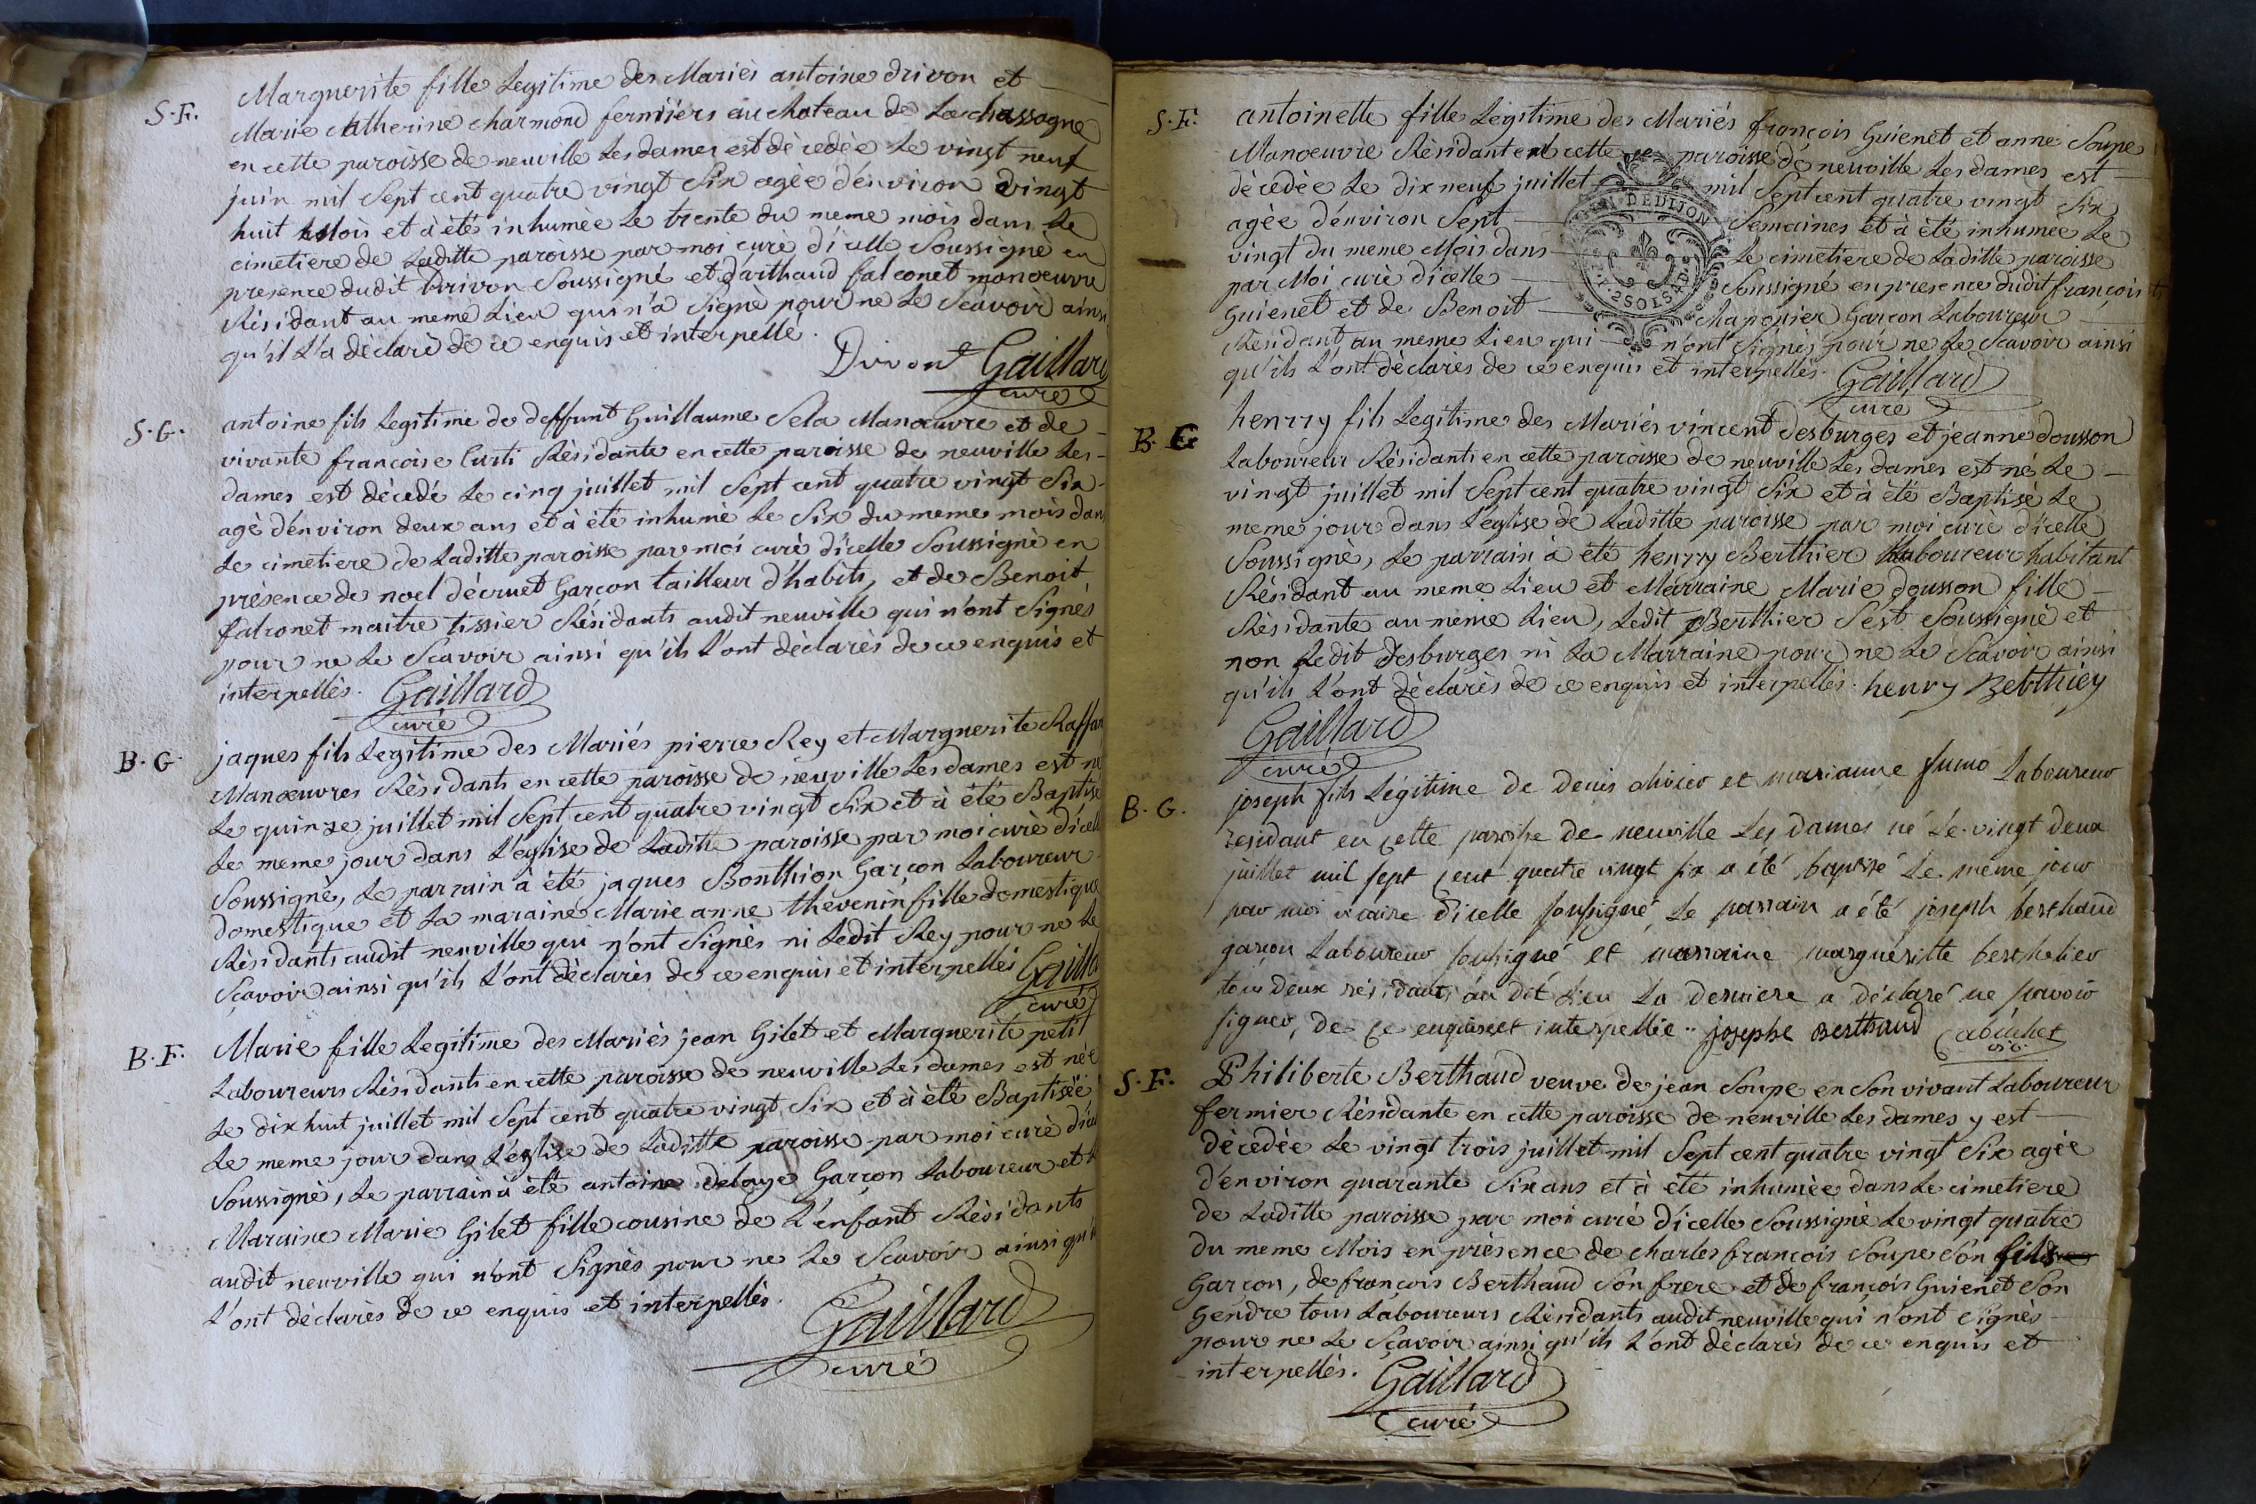 S.F.
Marguerite fille Legitime des Mariés antoine drivon et
Marie Catherine charmond fermiers au chateau de Lachassagne
en cette paroisse de neuville Les dames est dècedèe Le vingt neuf
juin mil Sept cent quatre vingt Six agèe d'énviron vingt
huit Mois et à été inhumée Le trente du meme mois dans Le
cimetiere de Laditte paroisse par moi curè d'icelle Soussigné en
presence dudit drivon Soussigné et d'arthaud falconet manoeuvre
Rèsidant au meme Lieu qui n'a Signè pour ne Le Scavoir ainsi
qu'il L'a dèclarè de ce enquis et interpelle.
Drivon Gaillard
curé
S.G.
antoine fils Legitime de deffunt Guillaume Sela Manœuvre et de
vivante francoise Curti Rèsidante en cette paroisse de neuville Les
dames est dècedé Le cinq juillet mil Sept cent quatre vingt Six
agè d'énviron deux ans et à étè inhumè Le Six du meme mois dans
Le cimetiere de Laditte paroisse par moi curè d'icelle Soussignè en
prèsence de noel dècruet Garcon tailleur d'habits, et de Benoit
falconet maitre tissier Rèsidants audit neuville qui n'ont Signés
pour ne Le Scavoir ainsi qu'ils L'ont dèclarès de ce enquis et
interpellès. Gaillard
curé
B.G.
jaques fils Legitime des Mariés pierre Rey et Marguerite Raffan
Manœuvres Rèsidants en cette paroisse de neuville Les dames est né
Le quinze juillet mil Sept cent quatre vingt Six et à étè Baptisé
Le meme jour dans L'église de Laditte paroisse par moi curè d'icelle
Soussigné, Le parrain à été jaques Bonthion Garçon Laboureur
domestique et La maraine Marie anne thèvenin fille domestique
Rèsidants audit neuville qui n'ont Signès ni Ledit Rey pour ne Le
Scavoir ainsi qu'ils L'ont dèclarès de ce enquis et interpellés Gailla
curé
B.F.
Marie fille Legitime des Mariès jean Gilet et Marguerite petit
Laboureurs Rèsidants en cette paroisse de neuville Les dames est née
Le dix huit juillet mil Sept cent quatre vingt Six et à étè Baptisèe
Le meme jour dans L'église de Laditte paroisse par moi curè d'icel
Soussignè, Le parrain à été antoine delaye Garçon Laboureur et La
Maraine Marie Gilet fille cousine de L'enfant Rèsidants
audit neuville qui n'ont Signès pour ne Le Scavoir ainsi qu'ils
L'ont déclarès de ce enquis et interpellès.
Gaillard
curé
S.F.
antoinette fille Légitime des Mariés françois Guienet et anne Soupe
Manœuvre Rèsidant en cette paroisse de neuville Les dames est
dècedèe Le dix neuf juillet mil Sept cent quatre vingt Six
agèe d'énviron Sept Semaines et à été inhumée Le
vingt du meme Mois dans Le cimetiere de Laditte paroisse
par Moi curè d'icelle Soussigné en presence dudit françois
Guienet et de Benoit chaponier Garcon Laboureur
Rèsidant au meme Lieu qui n'ont Signès pour ne Le Scavoir ainsi
qu'ils L'ont dèclarès de ce enquis et interpellès. Gaillard
curé
DE DIJON
2 SOLS
B.G
henrry fils Legitime des Mariés vincent desburges et jeanne dousson
Laboureur Rèsidants en cette paroisse de neuville Les dames est né Le
vingt juillet mil Sept cent quatre vingt Six et à étè Baptisè Le
meme jour dans L'église de Laditte paroisse par moi curè d'icelle
Soussignè, Le parrain à étè henrry Berthier Laboureur habitant
Rèsidant au meme Lieu et Marraine Marie dousson fille
Rèsidante au meme Lieu, Ledit Berthier S'est Soussigné et
non Ledit desburges ni La Marraine pour ne Le Scavoir ainsi
qu'ils L'ont dèclarès de ce enquis et interpellès. henry Berthiey
Gaillard
curé
B.G.
joseph fils Légitime de denis olivier et marianne Laboureur
residant en cette paroisse de neuville Les dames né Le vingt deux
juillet mil sept cent quatre vingt six a été baptisé Le même jour
par moi vicaire d'icelle soussigné, Le parrain a été joseph berthaud
garçon Laboureur soussigné et marraine marguéritte berthelier
tous deux résidants au dit Lieu La derniere a déclaré ne savoir
signer, de ce enquise et interpellée.. josephe Berthaud Cabuchet
vic.
S.F.
Philiberte Berthaud veuve de jean Soupe en Son vivant Laboureur
fermier Rèsidante en cette paroisse de neuville Les dames y est
dècedèe Le vingt trois juillet mil Sept cent quatre vingt Six agèe
d'énviron quarante Six ans et à étè inhumèe dans Le cimetiere
de Laditte paroisse par moi curè d'icelle Soussignè Le vingt quatre
du meme Mois en prèsence de charles françois Soupe Son fils
Garcon, de françois Berthaud Son frere et de françois Guienet Son
Gendre tous Laboureurs Rèsidants audit neuville qui n'ont Signès
pour ne Le Scavoir ainsi qu'ils L'ont dèclarès de ce enquis et
interpellès. Gaillard
curé